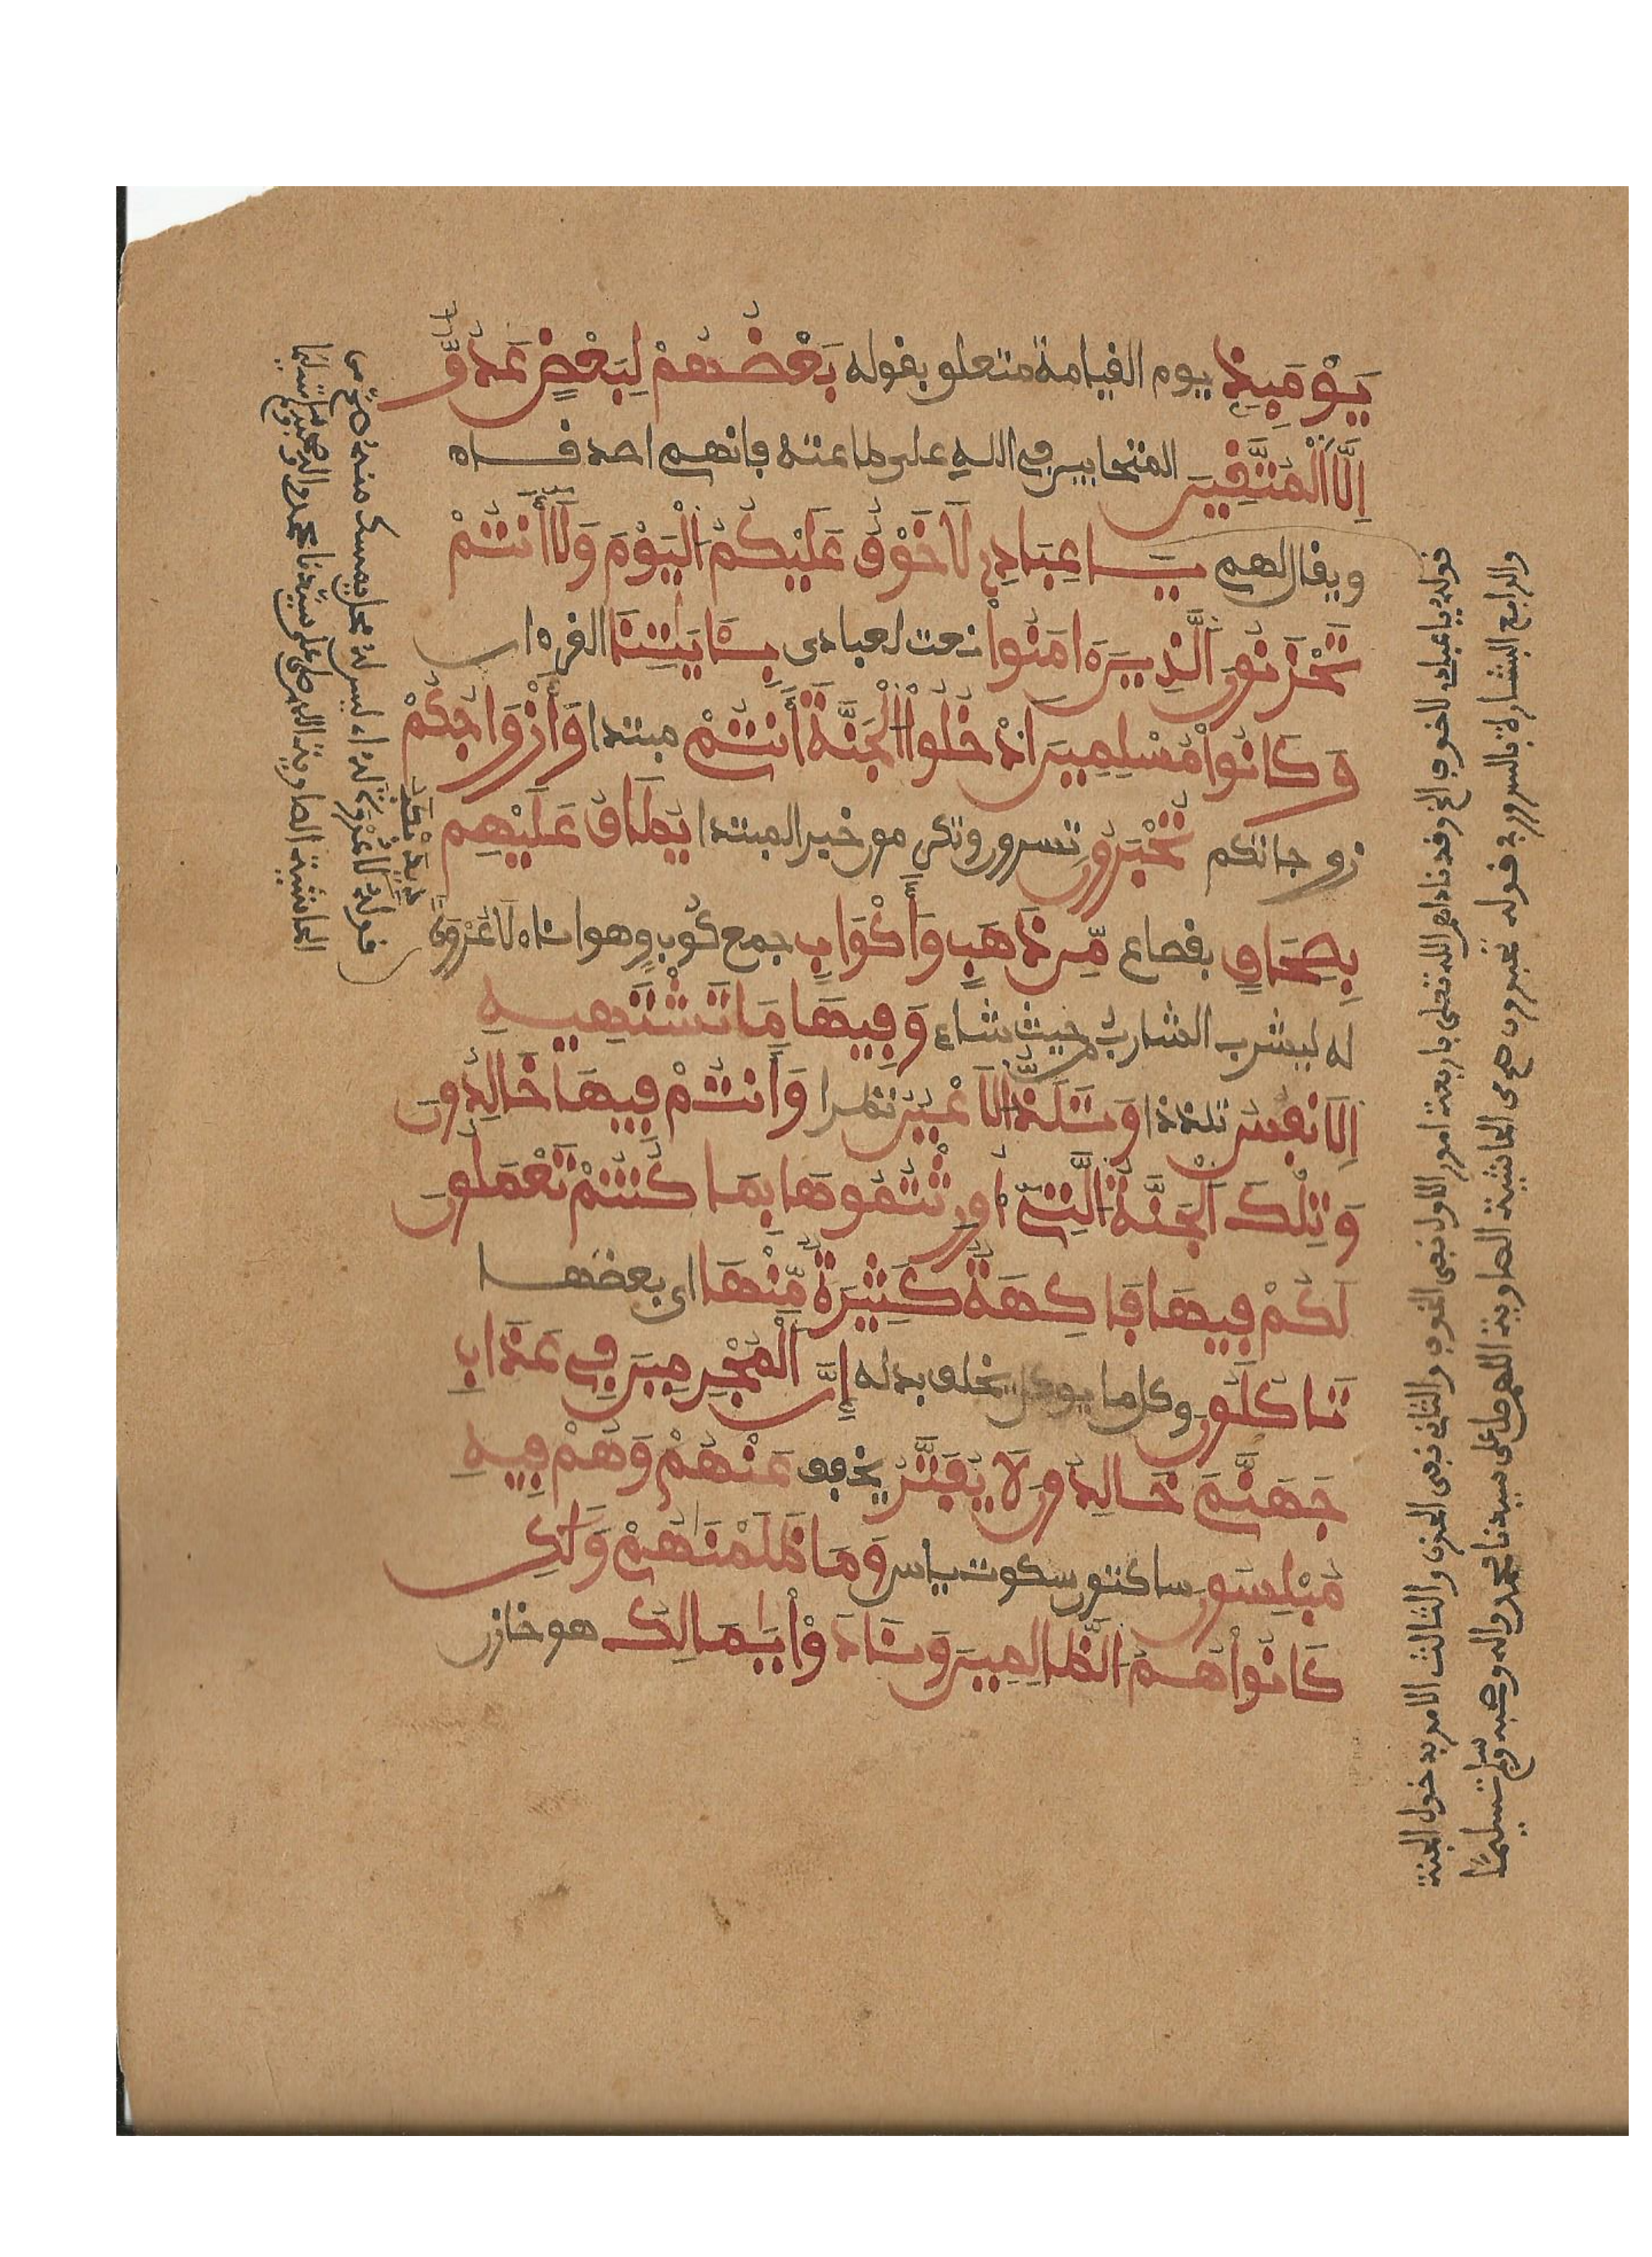 يَوْمَئِذٍ يوم القيامة متعلق بقوله بَعْضُهُمْ لِبَعْضٍ عَدُوٌّ
اِلَّا اَلْمُتَّقِينَ المتحابين في الله على طاعته فانهم اصدقاء
ويقال لهم يَـاعِبَادِے لَا خَوْفٌ عَلَيْكُمُ الْيَوْمَ وَلَا أَنتُمْ
تَحْزَنُونَ الَّذِينَ ءَامَنُواْ نعت لعبادى بِـَٔايَـٰتِنَا القرءان
وَكَانُواْ مُسْلِمِينَ ادْخُلُواْ الْجَنَّةَ أَنتُمْ مبتدا وَأَزْوَاجُكُمْ
زوجاتكم تُحْبَرُونَ تسرون وتكرمون خبر المبتدا يُطَافُ عَلَيْهِم
بِصِحَافٍ بقصاع مِّن ذَهَبٍ وَأَكْوَابٍ جمع كُوبٍ وهو اناء لَا عُرْوَةَ
له ليشرب الشارب من حيث شاء وَفِيهَا مَا تَشْتَهِيهِ
اِلَانفُسُ تلذذا وَتَلَذُّ الَاعْيُنُ نظرا وَأَنتُمْ فِيهَا خَالِدُونَ
وَتِلْكَ الْجَنَّةُ الَّتِے أُورِثْتُمُوهَا بِمَا كُنتُمْ تَعْمَلُونَ
لَكُمْ فِيهَا فَاكِهَةٌ كَثِيرَةٌ مِّنْهَا اى بعضها
تَاكُلُونَ وكل ما يوكل يخلف بدله إِنَّ الْمُجْرِمِينَ فِے عَذَابِ
جَهَنَّمَ خَالِدُونَ لَا يُفَتَّرُ يخفف عَنْهُمْ وَهُمْ فِيهِ
مُبْلِسُونَ ساكتون سكوت ياس وَمَا ظَلَمْنَـٰهُمْ وَلَـٰكِن
كَانُواْ هُمُ الظَّالِمِينَ وَنَادَوْاْ يَـٰمَالِكُ هو خازن
قوله يا عبادى لا خوف الخ وقد ناداهم الله تعلى باربعة امور الاول نفى الخوف والثانى نفى الحزن والثالث الامر بدخول الجنة
والرابع البشارة بالسرور في قوله تحبرون صح من الحاشية الصاوية اللهم صل على سيدنا محمد واله وصحبه وسلم تسليما
قوله لا عُرْوَةَ له اى ليس له محل يمسك منه صح من
الحاشية الصاوية اللهم صل على سيدنا محمد واله وصحبه وسلم تسليما